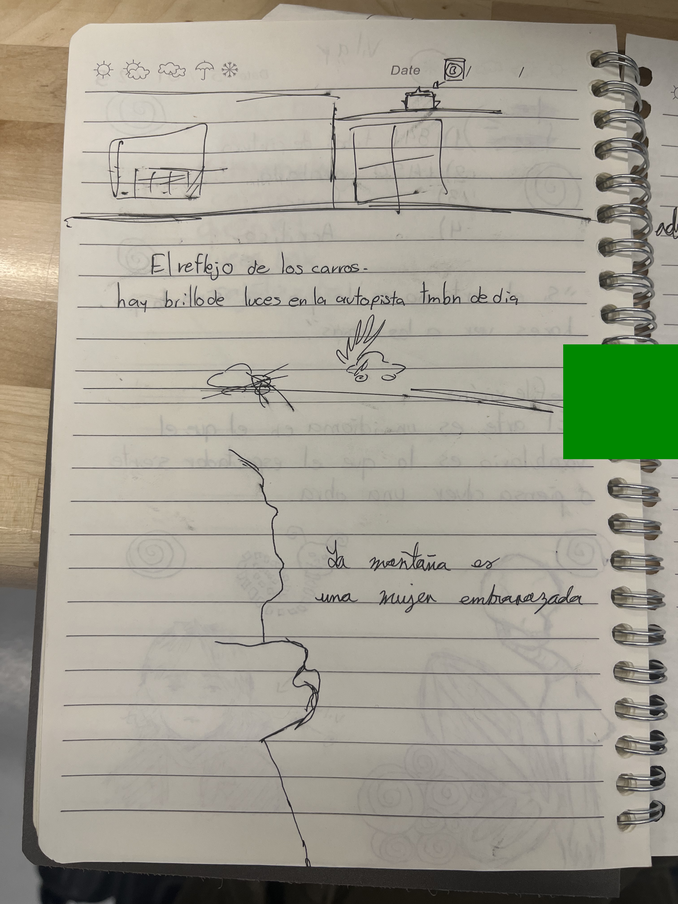 Date / /
El reflejo de los carros.
hay brillo de luces en la autopista tmbn de dia
La montaña es
una mujer embarazada